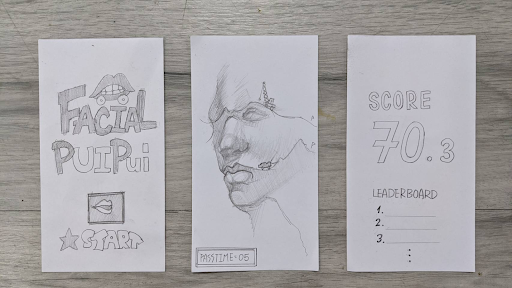 FACIAL
PUIPui
START
PASSTIME-05
SCORE
70.3
LEADERBOARD
1.
2.
3.